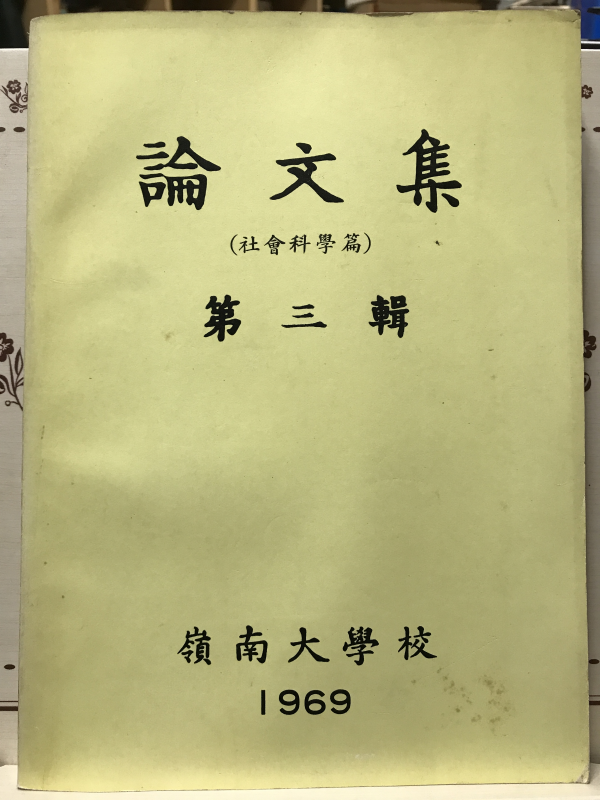 論文集
(社會科學篇)
第三輯
嶺南大學校
1969